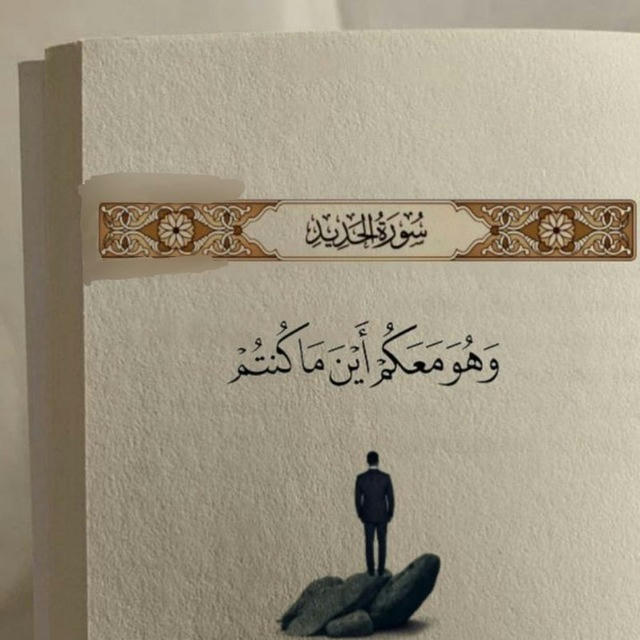 سُورَةُ الْحَدِيدِ
وَهُوَ مَعَكُمْ أَيْنَ مَا كُنتُمْ